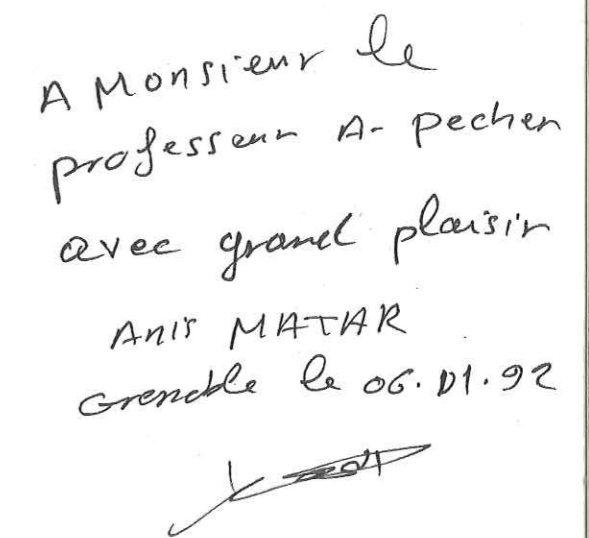 A Monsieur le
professeur A. pecher
avec grand plaisir
Anis MATAR
Grenoble le 06.01.92